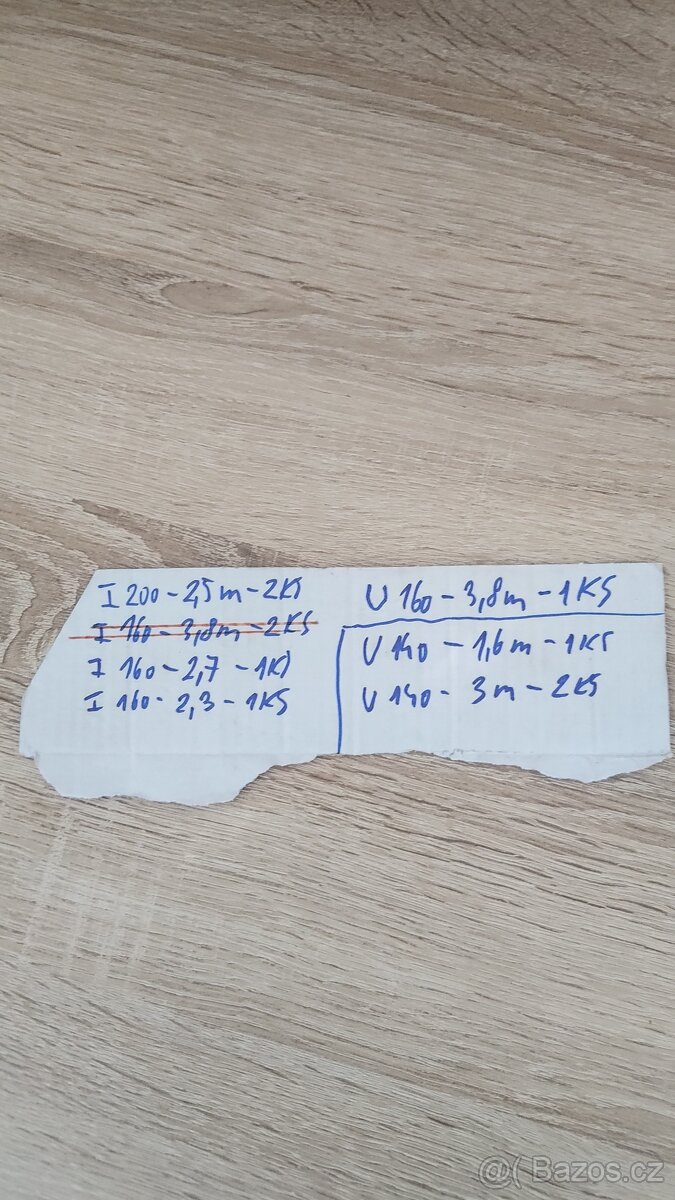 I 200 - 2,5 m - 2KS
I 160 - 3,8m - 2KS
I 160 - 2,7 - 1KS
I 160 - 2,3 - 1KS
U 160 - 3,8m - 1KS
U 140 - 1,6m - 1KS
U 140 - 3m - 2KS
@( Bazos.cz